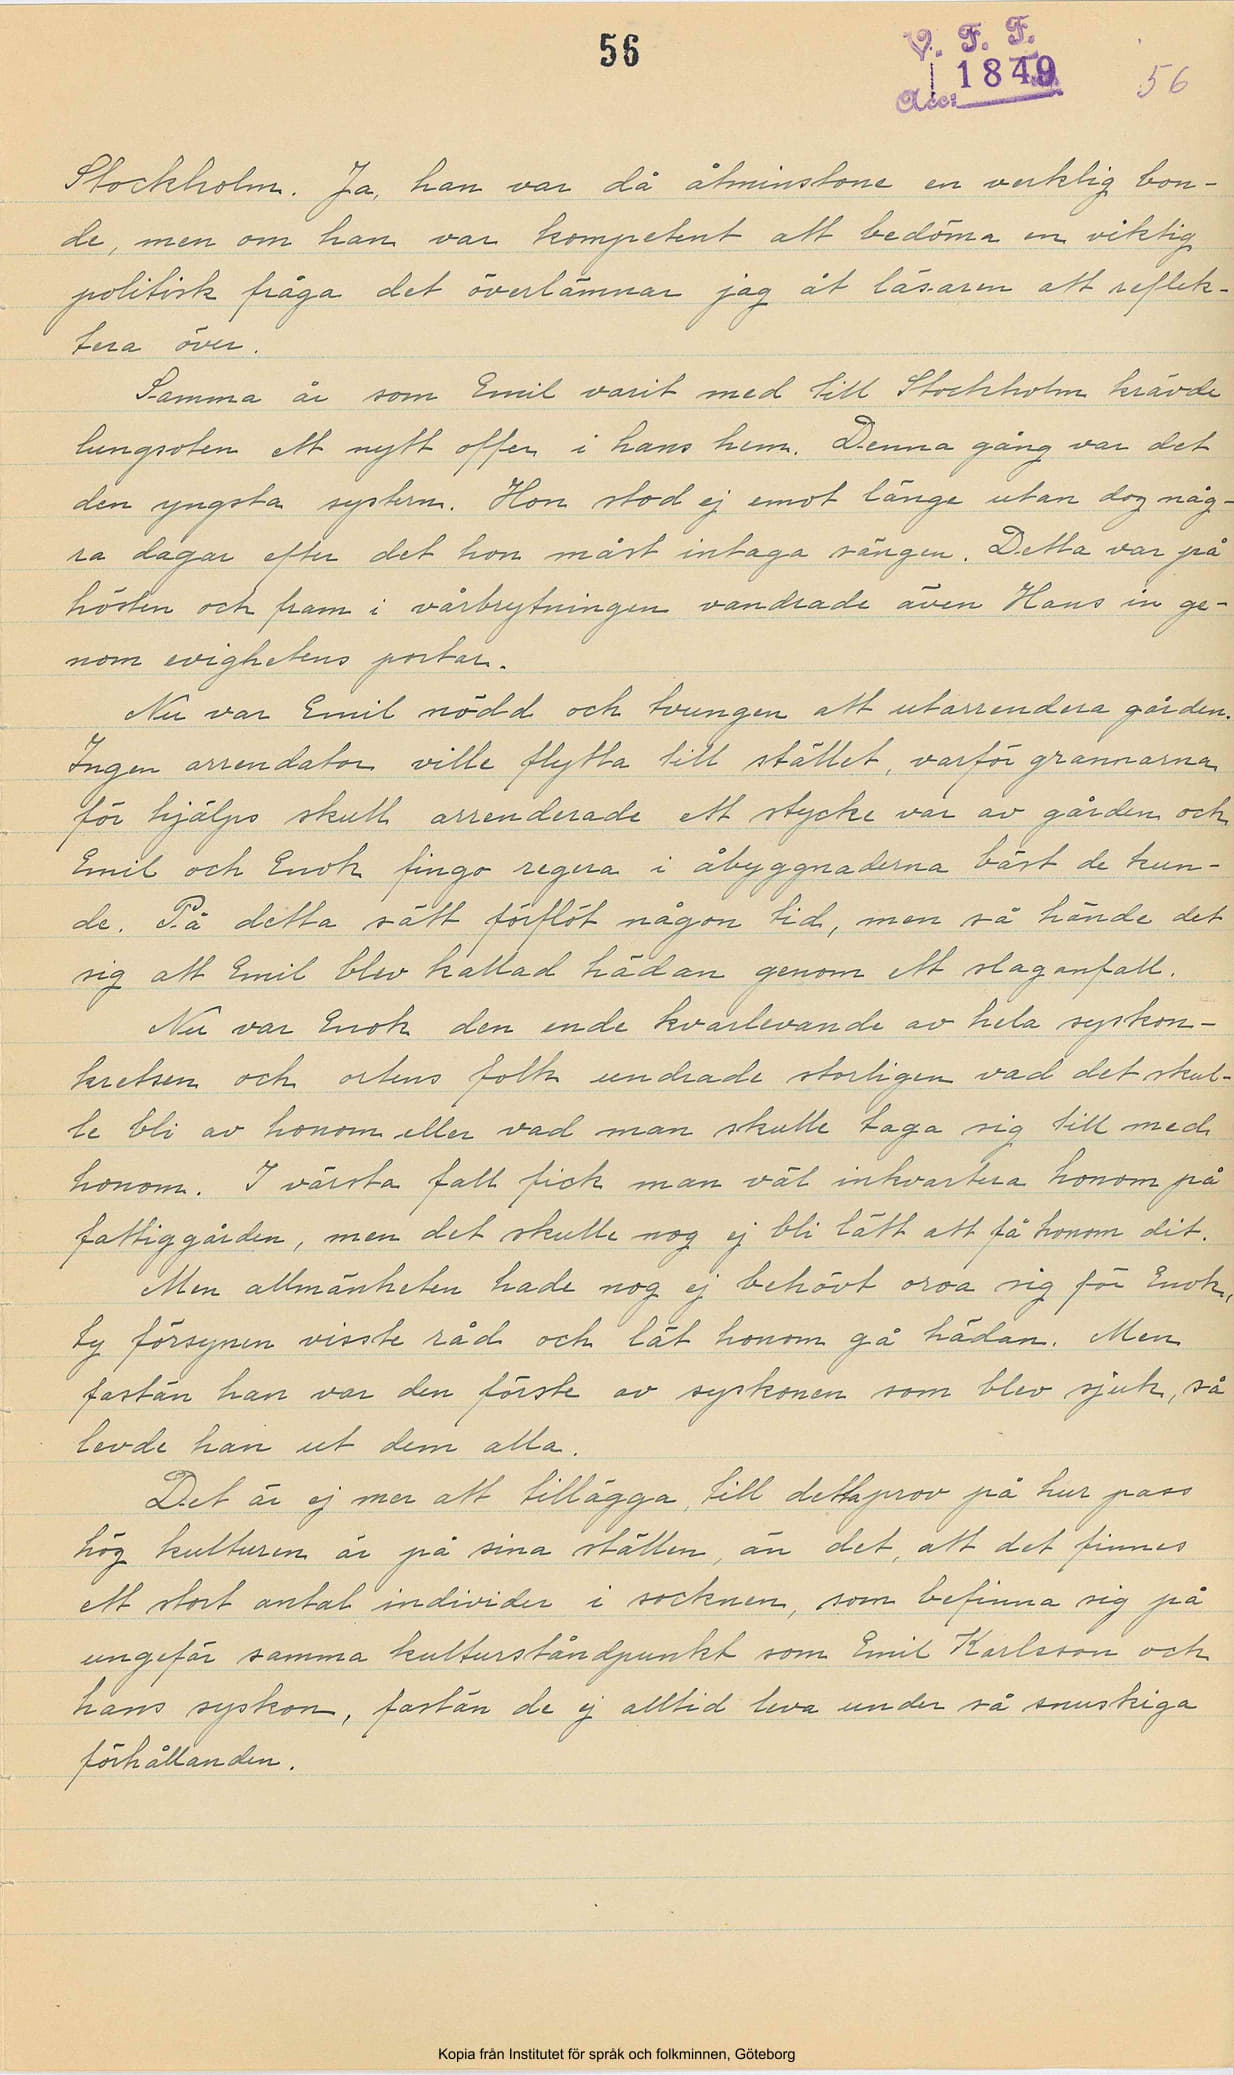 56
V. F. F.
1849
Acc:
56
Stockholm. Ja, han var då åtminstone en verklig bon-
de, men om han var kompetent att bedöma en viktig
politisk fråga det överlämnar jag åt läsaren att reflek-
tera över.
Samma år som Emil varit med till Stockholm krävde
lungsoten ett nytt offer i hans hem. Denna gång var det
den yngsta systern. Hon stod ej emot länge utan dog någ-
ra dagar efter det hon måst intaga sängen. Detta var på
hösten och fram i vårbrytningen vandrade även Hans in ge-
nom evighetens portar.
Nu var Emil nödd och tvungen att utarrendera gården.
Ingen arrendator ville flytta till stället, varför grannarna
för hjälps skull arrenderade ett stycke var av gården och
Emil och Enok fingo regera i åbyggnaderna bäst de kun-
de. På detta sätt förflöt någon tid, men så hände det
sig att Emil blev kallad hädan genom ett slaganfall.
Nu var Enok den ende kvarlevande av hela syskon-
kretsen och ortens folk undrade storligen vad det skul-
le bli av honom eller vad man skulle taga sig till med
honom. I värsta fall fick man väl inkvartera honom på
fattiggården, men det skulle nog ej bli lätt att få honom dit.
Men allmänheten hade nog ej behövt oroa sig för Enok,
ty försynen visste råd och lät honom gå hädan. Men
fastän han var den förste av syskonen som blev sjuk, så
levde han ut dem alla.
Det är ej mer att tillägga till detta prov på hur pass
hög kulturen är på sina ställen, än det, att det finnes
ett stort antal individer i socknen, som befinna sig på
ungefär samma kulturståndpunkt som Emil Karlsson och
hans syskon, fastän de ej alltid leva under så snuskiga
förhållanden.
Kopia från Institutet för språk och folkminnen, Göteborg